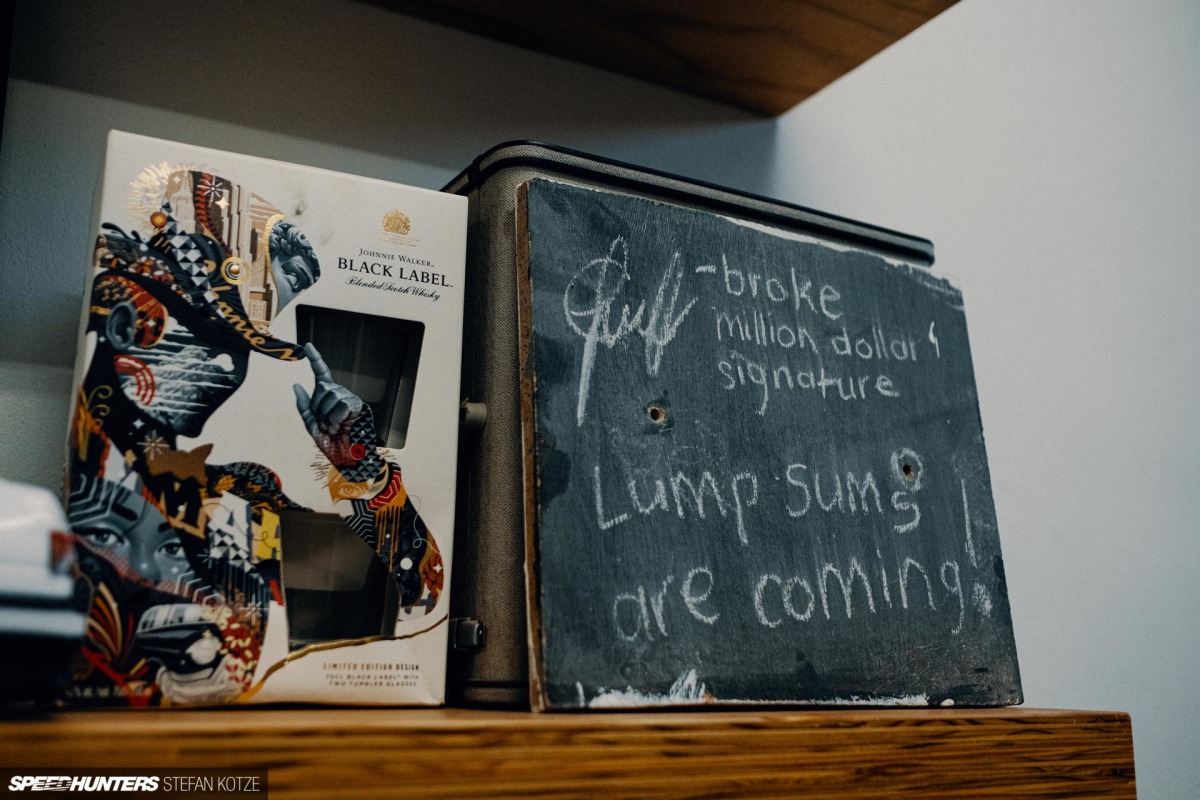 JOHNNIE WALKER
BLACK LABEL
Blended Scotch Whisky
LIMITED EDITION DESIGN
70CL BLACK LABEL WITH
TWO TUMBLER GLASSES
-broke
million dollar
signature
Lump sums
are coming!
SPEEDHUNTERS STEFAN KOTZE